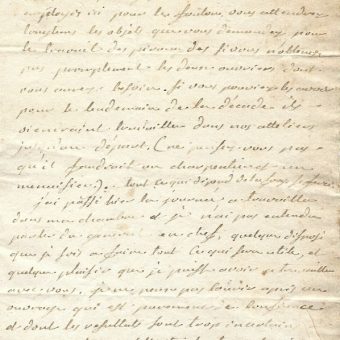 employés ici pour les
longtems les objets que vous demandez pour
le travail des si vous n'obtenez
pas promptement les deux ouvriers dont
vous avez besoin. si vous pouviez les avoir
pour le lendemain de la décade ils
viendraient travailler dans nos atteliers
jusqu'au départ. (ne pensez vous pas
qu'il faudroit un charpentier un
menuisier). tout ce qui dépend de la
j'ai passé hier la journée a travailler
dans ma chambre et je n'ai pas entendu
parler du général en chef, quelque disposé
que je sois a faire tout ce qui sera utile, et
quelque plaisir que je puisse avoir a travailler
avec vous. je ne puis pas courir après un
ouvrage qui est
et dont les resultats sont trop incertains